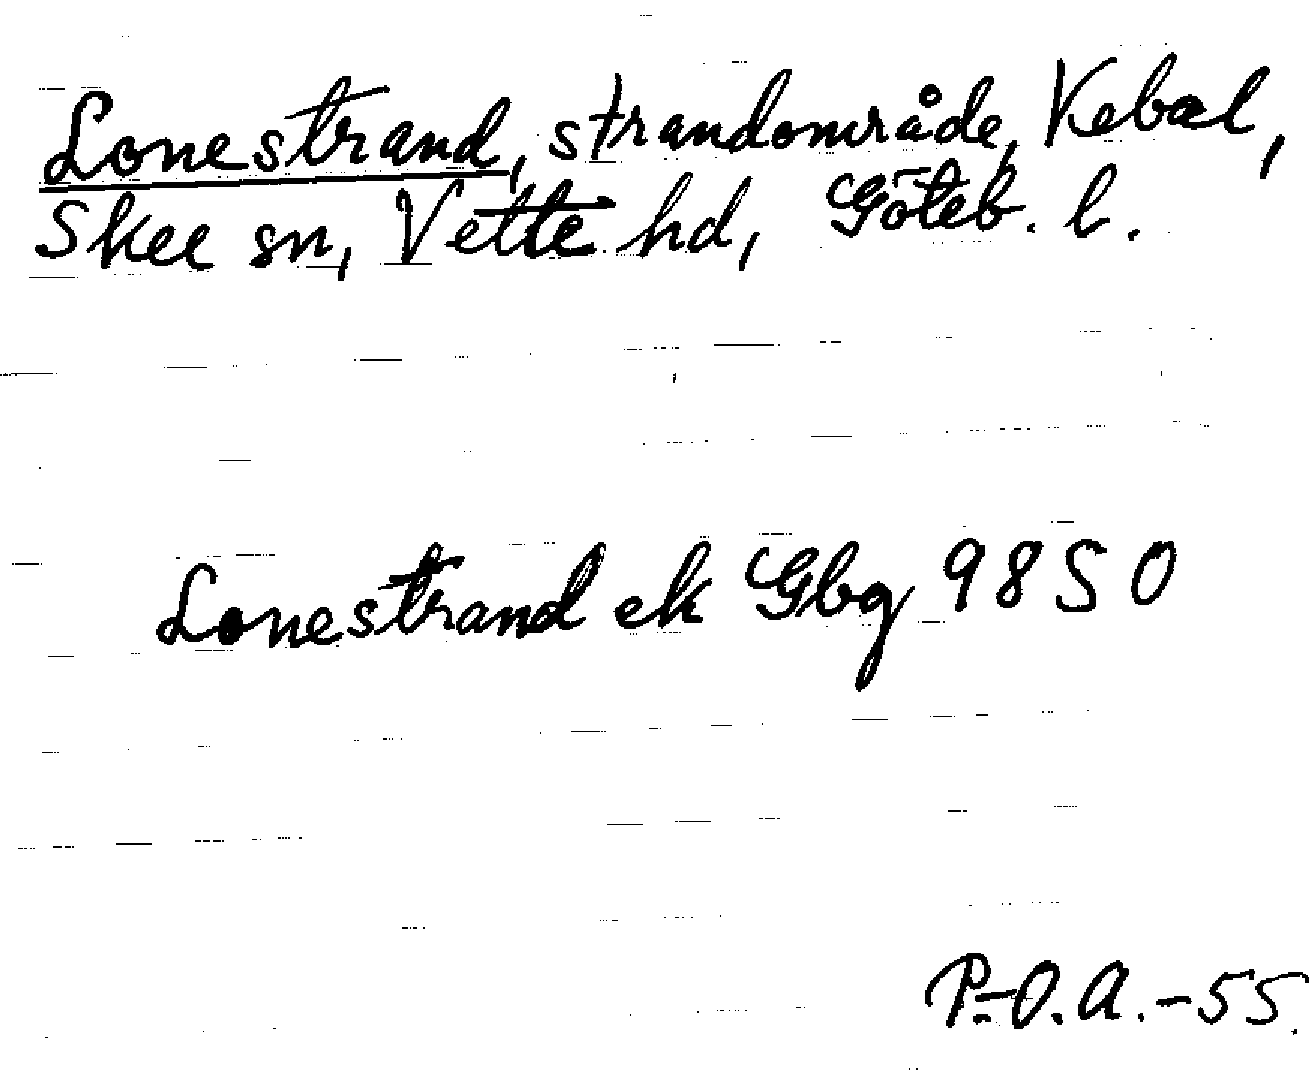 Lonestrand, strandområde, Kebal,
Skee sn, Vette hd, Göteb. l.
Lonestrand ek Gbg 9850
P.-O. A. -55.